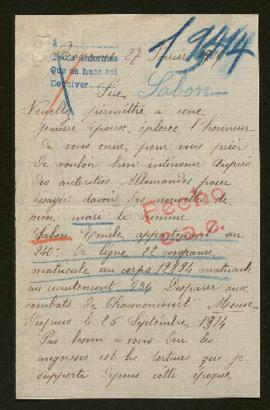 19414
A
Que se haga así
Devolver
27 Février
Salon
Sire,
Veuillez permettre à une
pauvre épouse, éplorée l'honneur
de vous écrire, pour vous prier
de vouloir bien intervenir auprès
des autorités Allemandes pour
essayer d'avoir des nouvelles de
mon mari le nommé
Salon Emile appartenant au
240e de ligne 22 compagnie
matricule au corps matricule
au recrutement 224 Disparu aux
combats de Meuse
Depuis le 25 Septembre 1914
Pas besoin à vous dire les
angoisses et les tortures que je
supporte depuis cette époque
Fecho